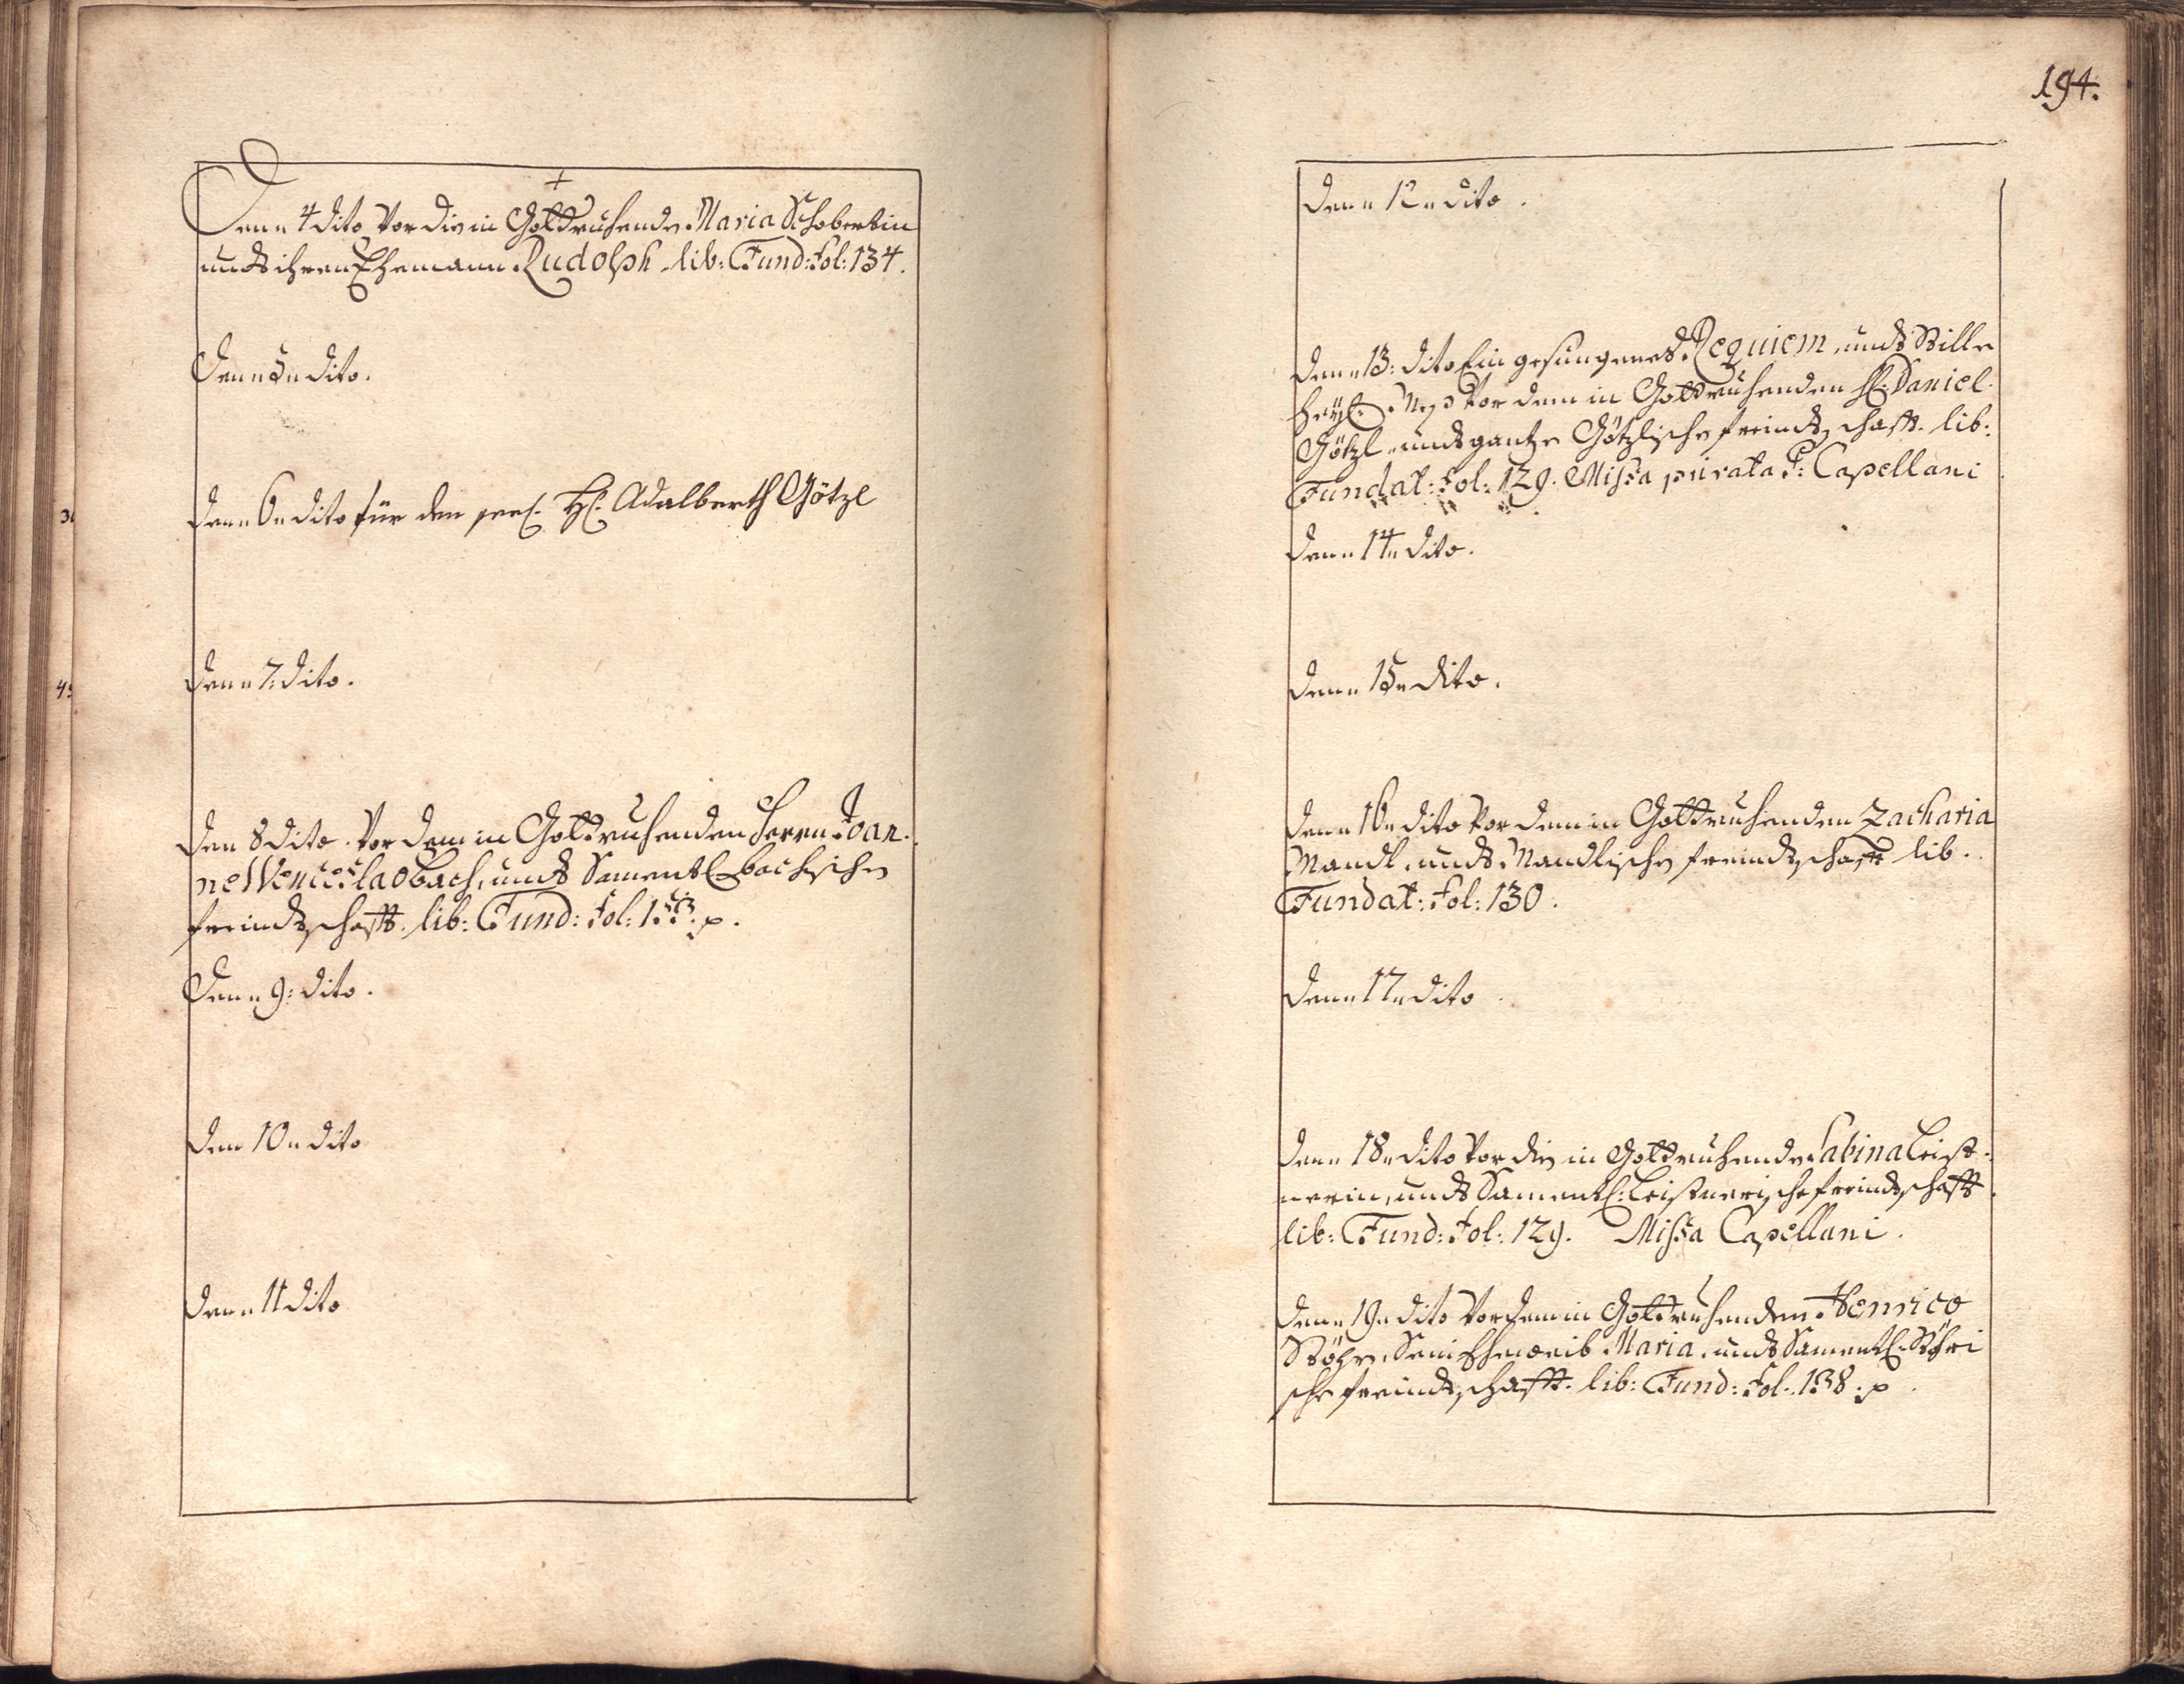 +
Denn 4 dito vor die in Gott ruhende Maria Schoberlin
undt ihren Ehemann Rudolph lib: Fund: Fol: 134.
Denn 5n dito.
Denn 6n dito für den seel. H: Adalberth Götzl
Denn 7: dito.
Den 8 dito. vor dem in Gott ruhenden Herrn Joan-
ne Wenceslao Bach, undt Samentl. bachische
freindtschafft. lib: Fund: Fol: 133. p.
Denn 9: dito.
Denn 10n dito
Denn 11 dito
194.
Denn 12n dito.
Denn 13: dito Ein gesungenes Requiem, undt Stille
Heyl: Mess vor dem in Gott ruhenden H: Daniel
Götzl undt gantze Götzlische freindtschafft. lib:
Fundat: Fol: 129. Missa privata P: Capellani
Denn 14n dito.
Denn 15n dito.
Denn 16n dito vor dem in Gott ruhenden Zacharia
Mandl, undt Mandlische freindtschafft lib.
Fundat: Fol: 130.
Denn 17n dito
Denn 18n dito vor die in Gott ruhende Sabina Leist-
nerin, undt Samentl: Leistnerische freindtschafft
lib: Fund: Fol: 129. Missa Capellani.
Denn 19n dito vor dem in Gott ruhenden Henrico
Stöhr, Sein Eheweib Maria, undt Samentl. Stöhri
sche freindtschafft. lib: Fund: Fol: 138. p